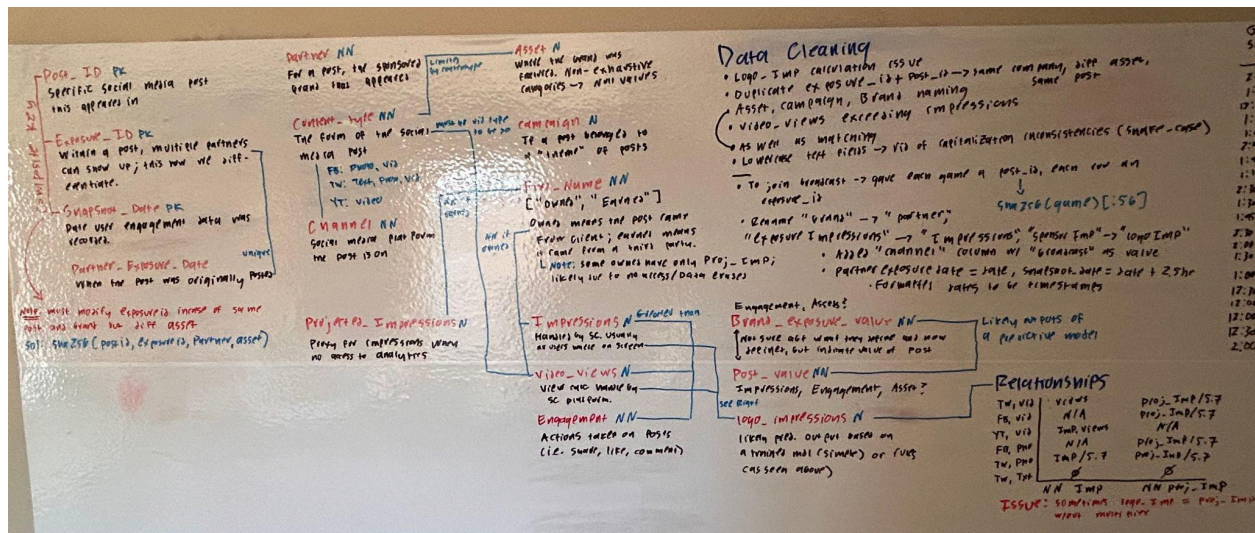 Post_ID PK
Specific social media post
this appeared in
Composite key
Exposure_ID PK
Within a post, multiple partners
can show up; this how we diff-
erentiate.
Snapshot_Date PK
Date user engagement data was
recorded.
unique
Partner_Exposure_Date
When the post was originally posted
Note: must modify exposureid incase of same
post and brand but diff asset
Sol: sha256(postid, exposureid, partner, asset)
Partner NN
For a post, the sponsored
brand that appeared
Content_type NN
The form of the social
media post
FB: Photo, Vid
TW: Text, Photo, Vid
YT: Video
Channel NN
Social media platform
the post is on
Projected_Impressions N
Proxy for impressions when
no access to analytics
Limited
by content type
must be vid type
to be
NN if
owned
Asset N
Where the brand was
featured. Non-exhaustive
categories -> Null values
Campaign N
If a post belonged to
a "theme" of posts
Name NN
["Owned", "Earned"]
Owned means the post came
from client; earned means
it came from a third party.
Note: some owned have only Proj_Imp;
likely due to no access/Data erased
Impressions N
Greater than
Handled by SC. Usually
as users on screen
Video_views N
View calc handled by
SC platform.
Engagement NN
Actions taken on posts
(i.e. share, like, comment)
Data Cleaning
• Logo_Imp calculation issue
• Duplicate exposure_id + Post_id -> same company, diff asset,
same post
Asset, campaign, Brand naming
• Video_views exceeding impressions
• As well as matching
• Lowercase text fields -> rid of capitalization inconsistencies (snake-case)
• To join broadcast -> gave each game a post_id, each row an
exposure_id
sha256(game)[:56]
• Rename "brand" -> "partner",
"exposure Impressions" -> "Impressions", "sponsor Imp" -> "logo Imp"
• Added "channel" column w/ "Broadcast" as value
• Partner exposure date = date, snapshot_date = date +
• Formatted dates to be timestamps
Engagement, Assets?
Brand_exposure_value NN
Not sure abt what they define and how
defined, but indicate value of post
Likely outputs of
a predictive model
Post_value NN
Impressions, Engagement, Asset?
see right
logo_impressions N
likely pred. output based on
a trained mdl (simple) or rules
(as seen above)
Relationships
Tw, vid views Proj_Imp/5.7
FB, vid N/A Proj_Imp/5.7
YT, vid Imp, views N/A
FB, Pho N/A Proj_Imp/5.7
Tw, Pho Imp/5.7 Proj_Imp/5.7
Tw, Txt ∅ ∅
NN Imp NN Proj_Imp
Issue: sometimes logo_Imp = Proj_Imp
w/out multiplier